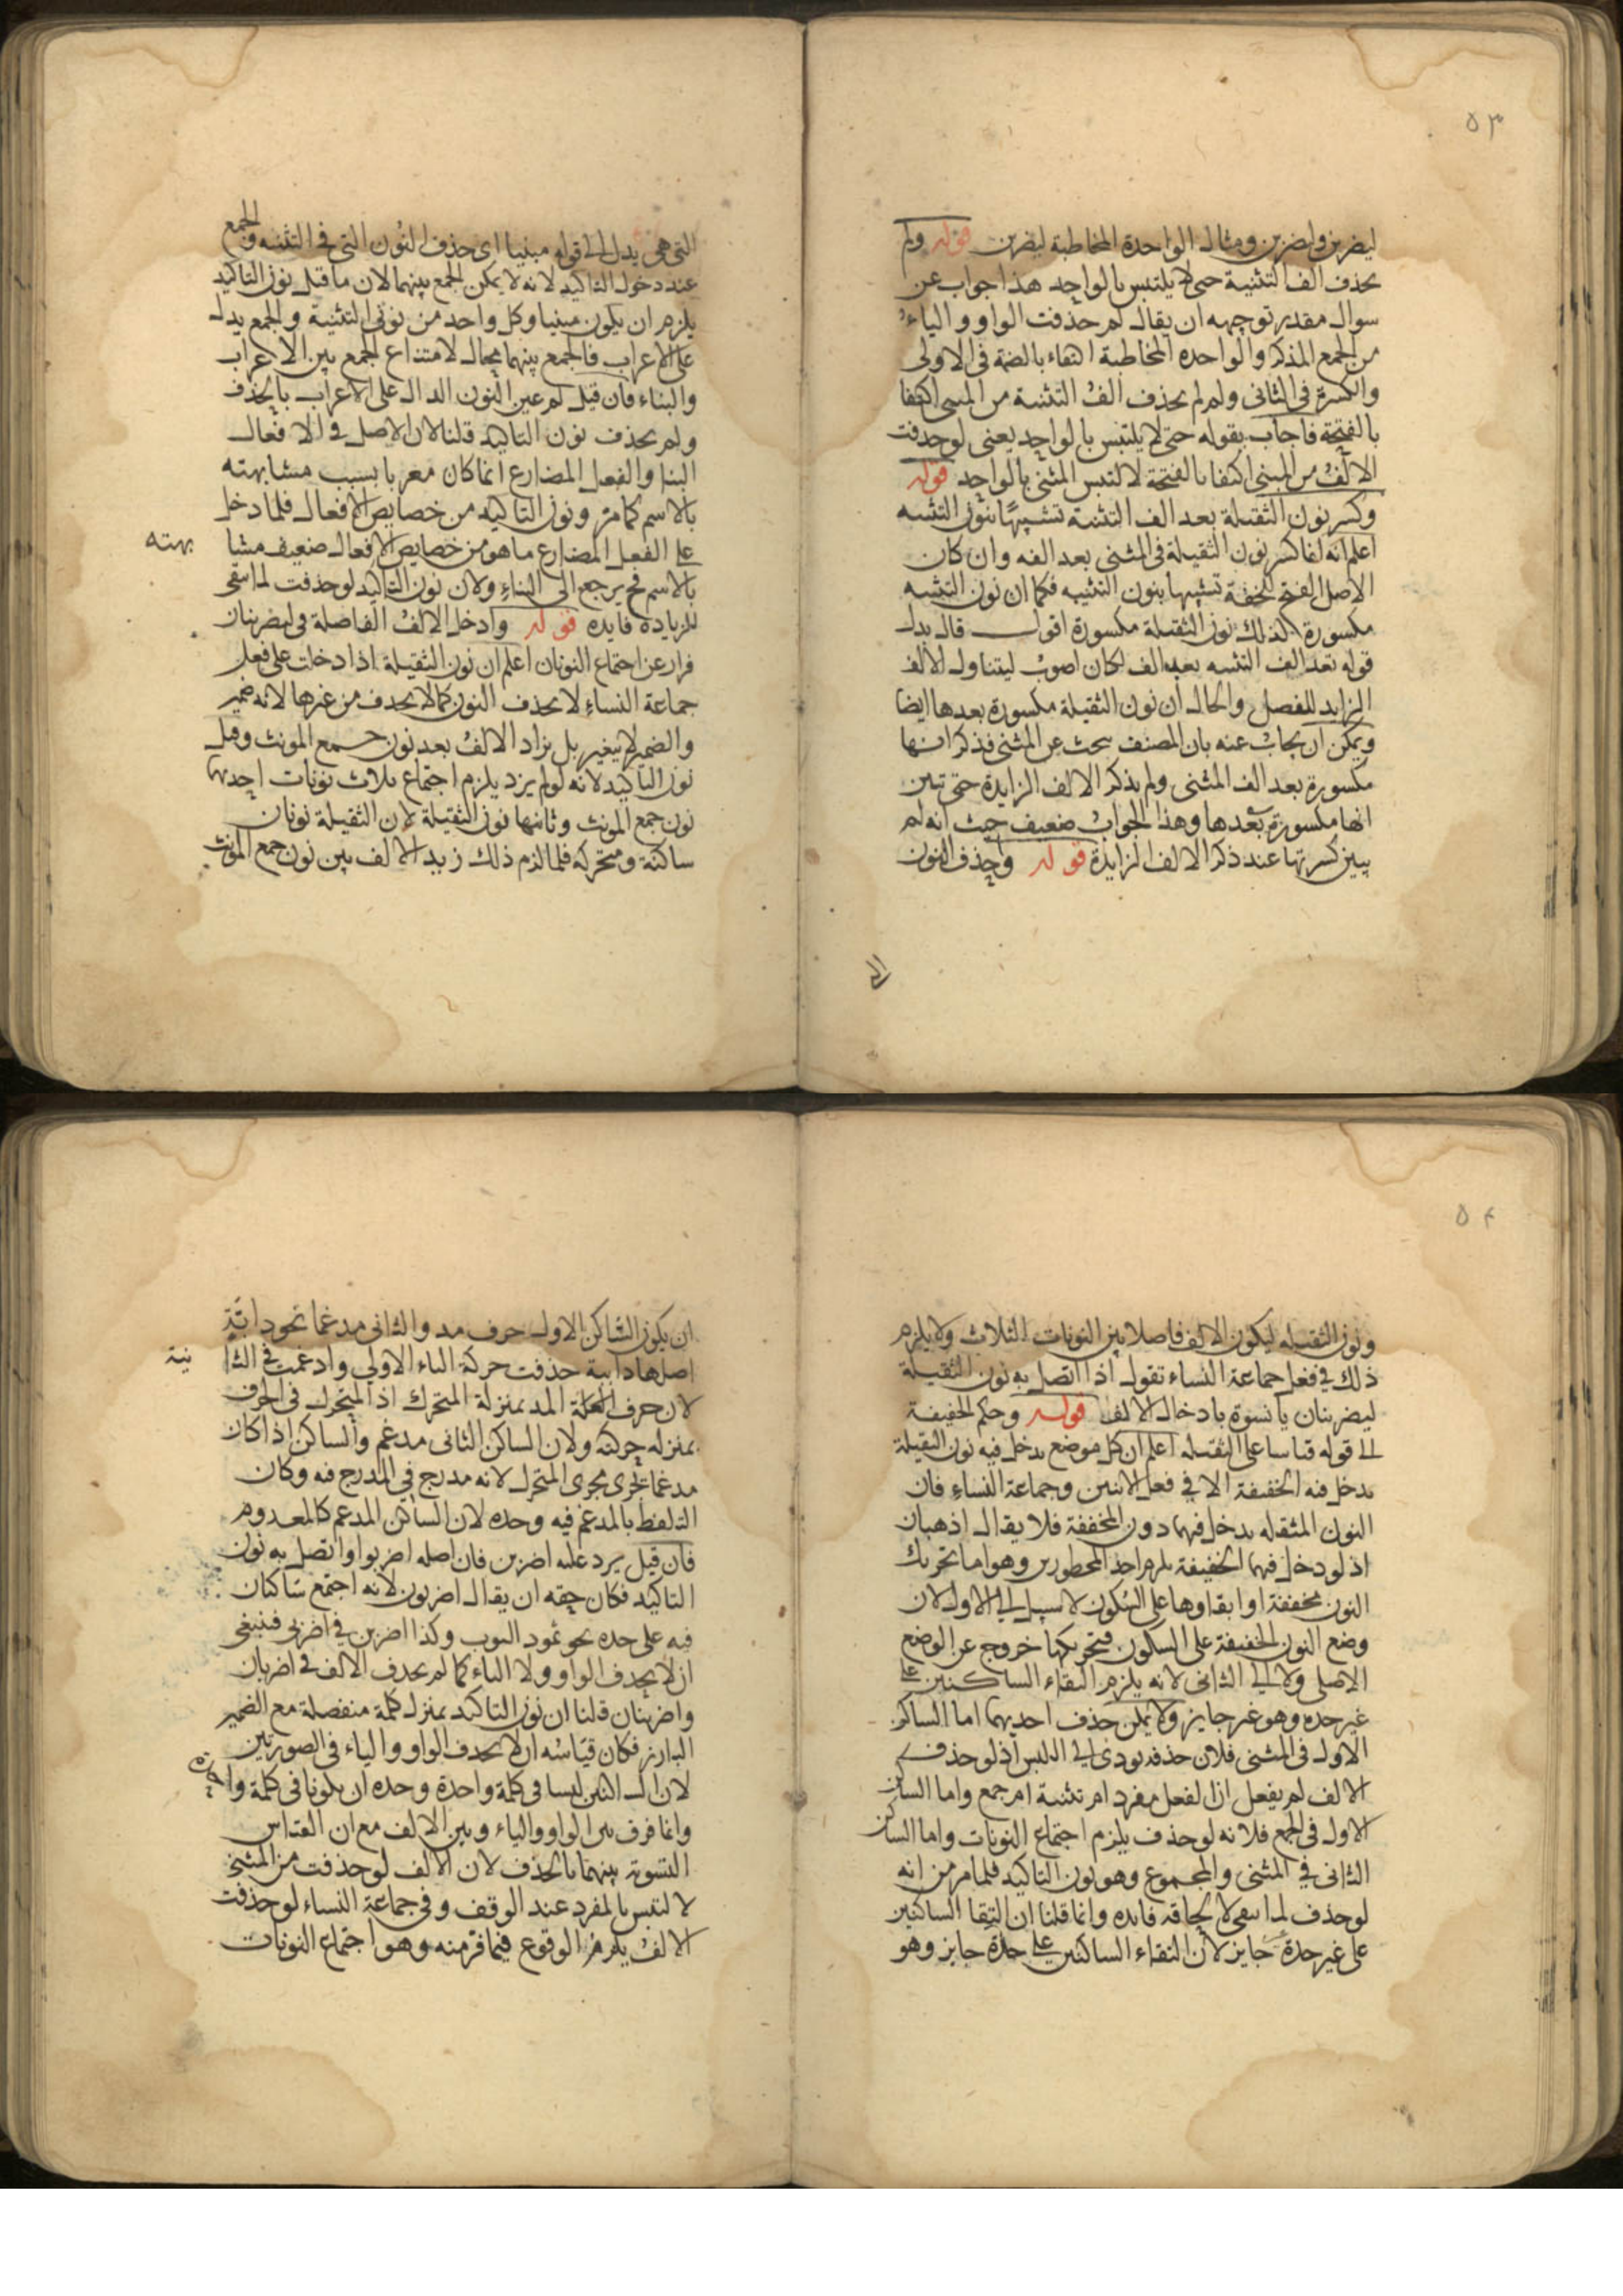 ٥٣
ليضربن وليضربن ومثال الواحدة المخاطبة ليضربن قوله ولم
يحذف الف التثنية حتى لا يلتبس بالواحد هذا جواب عن
سوال مقدر توجيهه ان يقال لم حذفت الواو والياء
من الجمع المذكر والواحده المخاطبة اكتفاء بالضمة في الاولى
والكسرة في الثاني ولم لم يحذف الف التثنية من المبنى اكتفا
بالفتحة فاجاب بقوله حتى لا يلتبس بالواحد يعنى لو حذفت
الالف من المبنى اكتفا بالفتحة لالتبس المثنى بالواحد قوله
وكسر نون الثقيلة بعد الف التثنية تشبيهًا بنون التثنيه
اعلم انه انما كسر نون الثقيلة في المثنى بعد الفه وان كان
الاصل الفتح لخفة تشبيها بنون التثنيه فكما ان نون التثنيه
مكسورة كذلك نون الثقيلة مكسورة اقول قال بدل
قوله بعد الف التثنيه بعد الف لكان اصوب ليتناول الالف
الزايد للفصل والحال ان نون الثقيلة مكسورة بعدها ايضا
ويمكن ان يجاب عنه بان المصنف يبحث عن المثنى فذكر انها
مكسورة بعد الف المثنى ولم يذكر الالف الزايدة حتى تبين
انها مكسورة بعدها وهذا الجواب ضعيف حيث انه لم
يبين كسرتها عند ذكر الالف الزايدة قوله وحذف النون
التي هي يدل الى قوله مبنيا اى حذف النون التي في التثنيه والجمع
عند دخول التاكيد لانه لا يمكن الجمع بينهما لان ما قبل نون التاكيد
يلزم ان يكون مبنيا وكل واحد من نوني التثنية والجمع يدل
على الاعراب فالجمع بينهما محال لامتناع الجمع بين الاعراب
والبناء فان قيل لم عين النون الدال على الاعراب بالحذف
ولم يحذف نون التاكيد قلنا لان الاصل في الافعال
البنا والفعل المضارع انما كان معربا بسبب مشابهته
بالاسم كما مر ونون التاكيد من خصايص الافعال فلما دخل
على الفعل المضارع ما هو من خصايص الافعال ضعيف مشا بهته
بالاسم فح يرجع الى البناء ولان نون التاكيد لو حذفت لما بقى
للزياده فايده قوله وادخل الالف الفاصلة في ليضربنان
فرار عن اجتماع النونان اعلم ان نون الثقيلة اذا دخلت على فعل
جماعة النساء لا يحذف النون كما لا يحذف من غيرها لانه ضمير
والضمير لا يتغير بل يزاد الالف بعد نون جمع المونث وقبل
نون التاكيد لانه لو لم يزد يلزم اجتماع ثلاث نونات احديها
نون جمع المونث وثانيها نون الثقيلة لان الثقيلة نونان
ساكنة ومتحركه فلما لزم ذلك زيد الالف بين نون جمع المونث
٥٤
ونون الثقيله ليكون الالف فاصلا بين النونات الثلاث ولا يلزم
ذلك في فعل جماعة النساء تقول اذا اتصل به نون الثقيلة
ليضربنان يا نسوة بادخال الالف قوله وحكم الخفيفة
الى قوله قياسا على الثقيله اعلم ان كل موضع يدخل فيه نون الثقيلة
يدخل فيه الخفيفة الا في فعل الاثنين وجماعة النساء فان
النون المثقله يدخل فيهما دون المخففة فلا يقال اذهبان
اذ لو دخل فيهما الخفيفة يلزم احد المحظورين وهو اما تحريك
النون مخففة او ابقاوها على السكون لا سبيل الى الاول لان
وضع النون الخفيفة على السكون فتحريكها خروج عن الوضع
الاصلى ولا الى الثانى لانه يلزم التقاء الساكنين على
غير حده وهو غير جايز ولا يمكن حذف احديهما اما الساكن
الاول في المثنى فلان حذفه يودى الى اللبس اذ لو حذف
الالف لم يفعل ان الفعل مفرد ام تثنية ام جمع واما الساكن
الاول في الجمع فلانه لو حذف يلزم اجتماع النونات واما الساكن
الثانى في المثنى والمجموع وهو نون التاكيد فلما مر من انه
لو حذف لما يبقى لالحاقه فايده وانما قلنا ان التقا الساكنين
على غير حدة جايز لان التقاء الساكنين على حدة جايز وهو
ان يكون الساكن الاول حرف مد والثانى مدغما نحو دابّة
اصلها داببة حذفت حركة الباء الاولى وادغمت في الثا نية
لان حرف العلة المد بمنزلة المتحرك اذ المتحرك في الحرف
بمنزله حركته ولان الساكن الثانى مدغم والساكن اذا كان
مدغما يجرى مجرى المتحرك لانه مدرج في المدرج فيه وكان
التلفظ بالمدغم فيه وحده لان الساكن المدغم كالمعدوم
فان قيل يرد عليه اضربن فان اصله اضربوا واتصل به نون
التاكيد فكان حقه ان يقال اضربون لانه اجتمع ساكنان
فيه على حده نحو تمود الثوب وكذا اضربن في اضربى فينبغى
ان لا يحذف الواو ولا الياء كما لم يحذف الالف في اضربان
واضربنان قلنا ان نون التاكيد بمنزلة كلمة منفصلة مع الضمير
البارز فكان قياسه ان لا يحذف الواو والياء في الصورتين
لان الساكنين ليسا في كلمة واحدة وحده ان يكونا في كلمة واحدة
وانما فرق بين الواو والياء وبين الالف مع ان القياس
التسوية بينهما بالحذف لان الالف لو حذفت من المثنى
لالتبس بالمفرد عند الوقف وفي جماعة النساء لو حذفت
الالف يلزم الوقوع فيما فر منه وهو اجتماع النونات